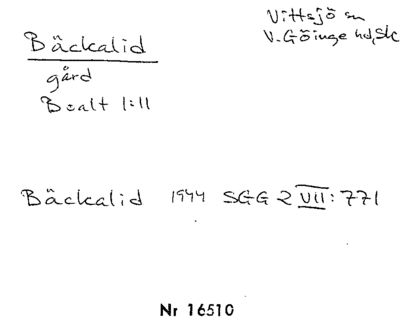 Bäckalid
Vittsjö sn
V. Göinge hd, Sk
gård
B=alt 1:11
Bäckalid 1944 SGG 2 VII: 771
Nr 16510